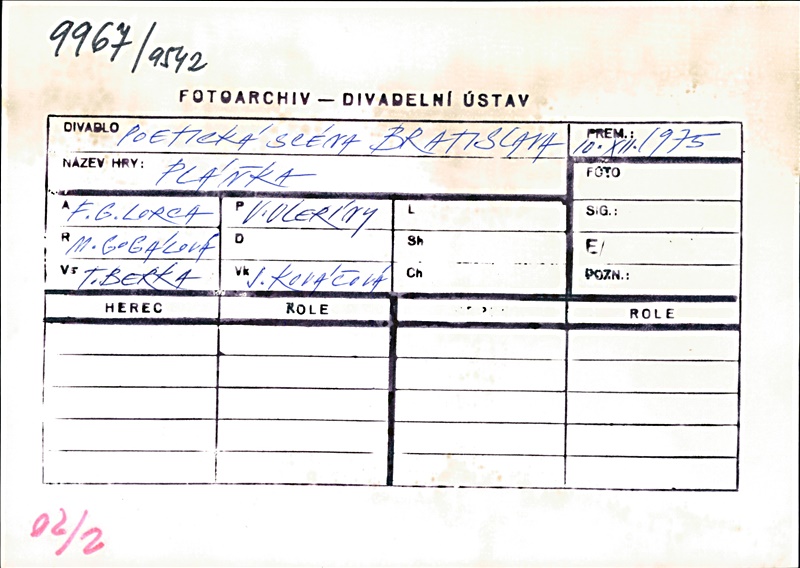 9967/9542
FOTOARCHIV — DIVADELNÍ ÚSTAV
DIVADLO POETICKÁ SCÉNA BRATISLAVA PREM.: 10.XII.1975
NÁZEV HRY: PLÁŇKA FOTO
A F.G.LORCA P V.OLERÍNY L SIG.:
R M.GOGÁLOVÁ D Sh E/
Vs T.BERKA Vk J.KOVÁČOVÁ Ch POZN.:
HEREC ROLE ROLE
02/2